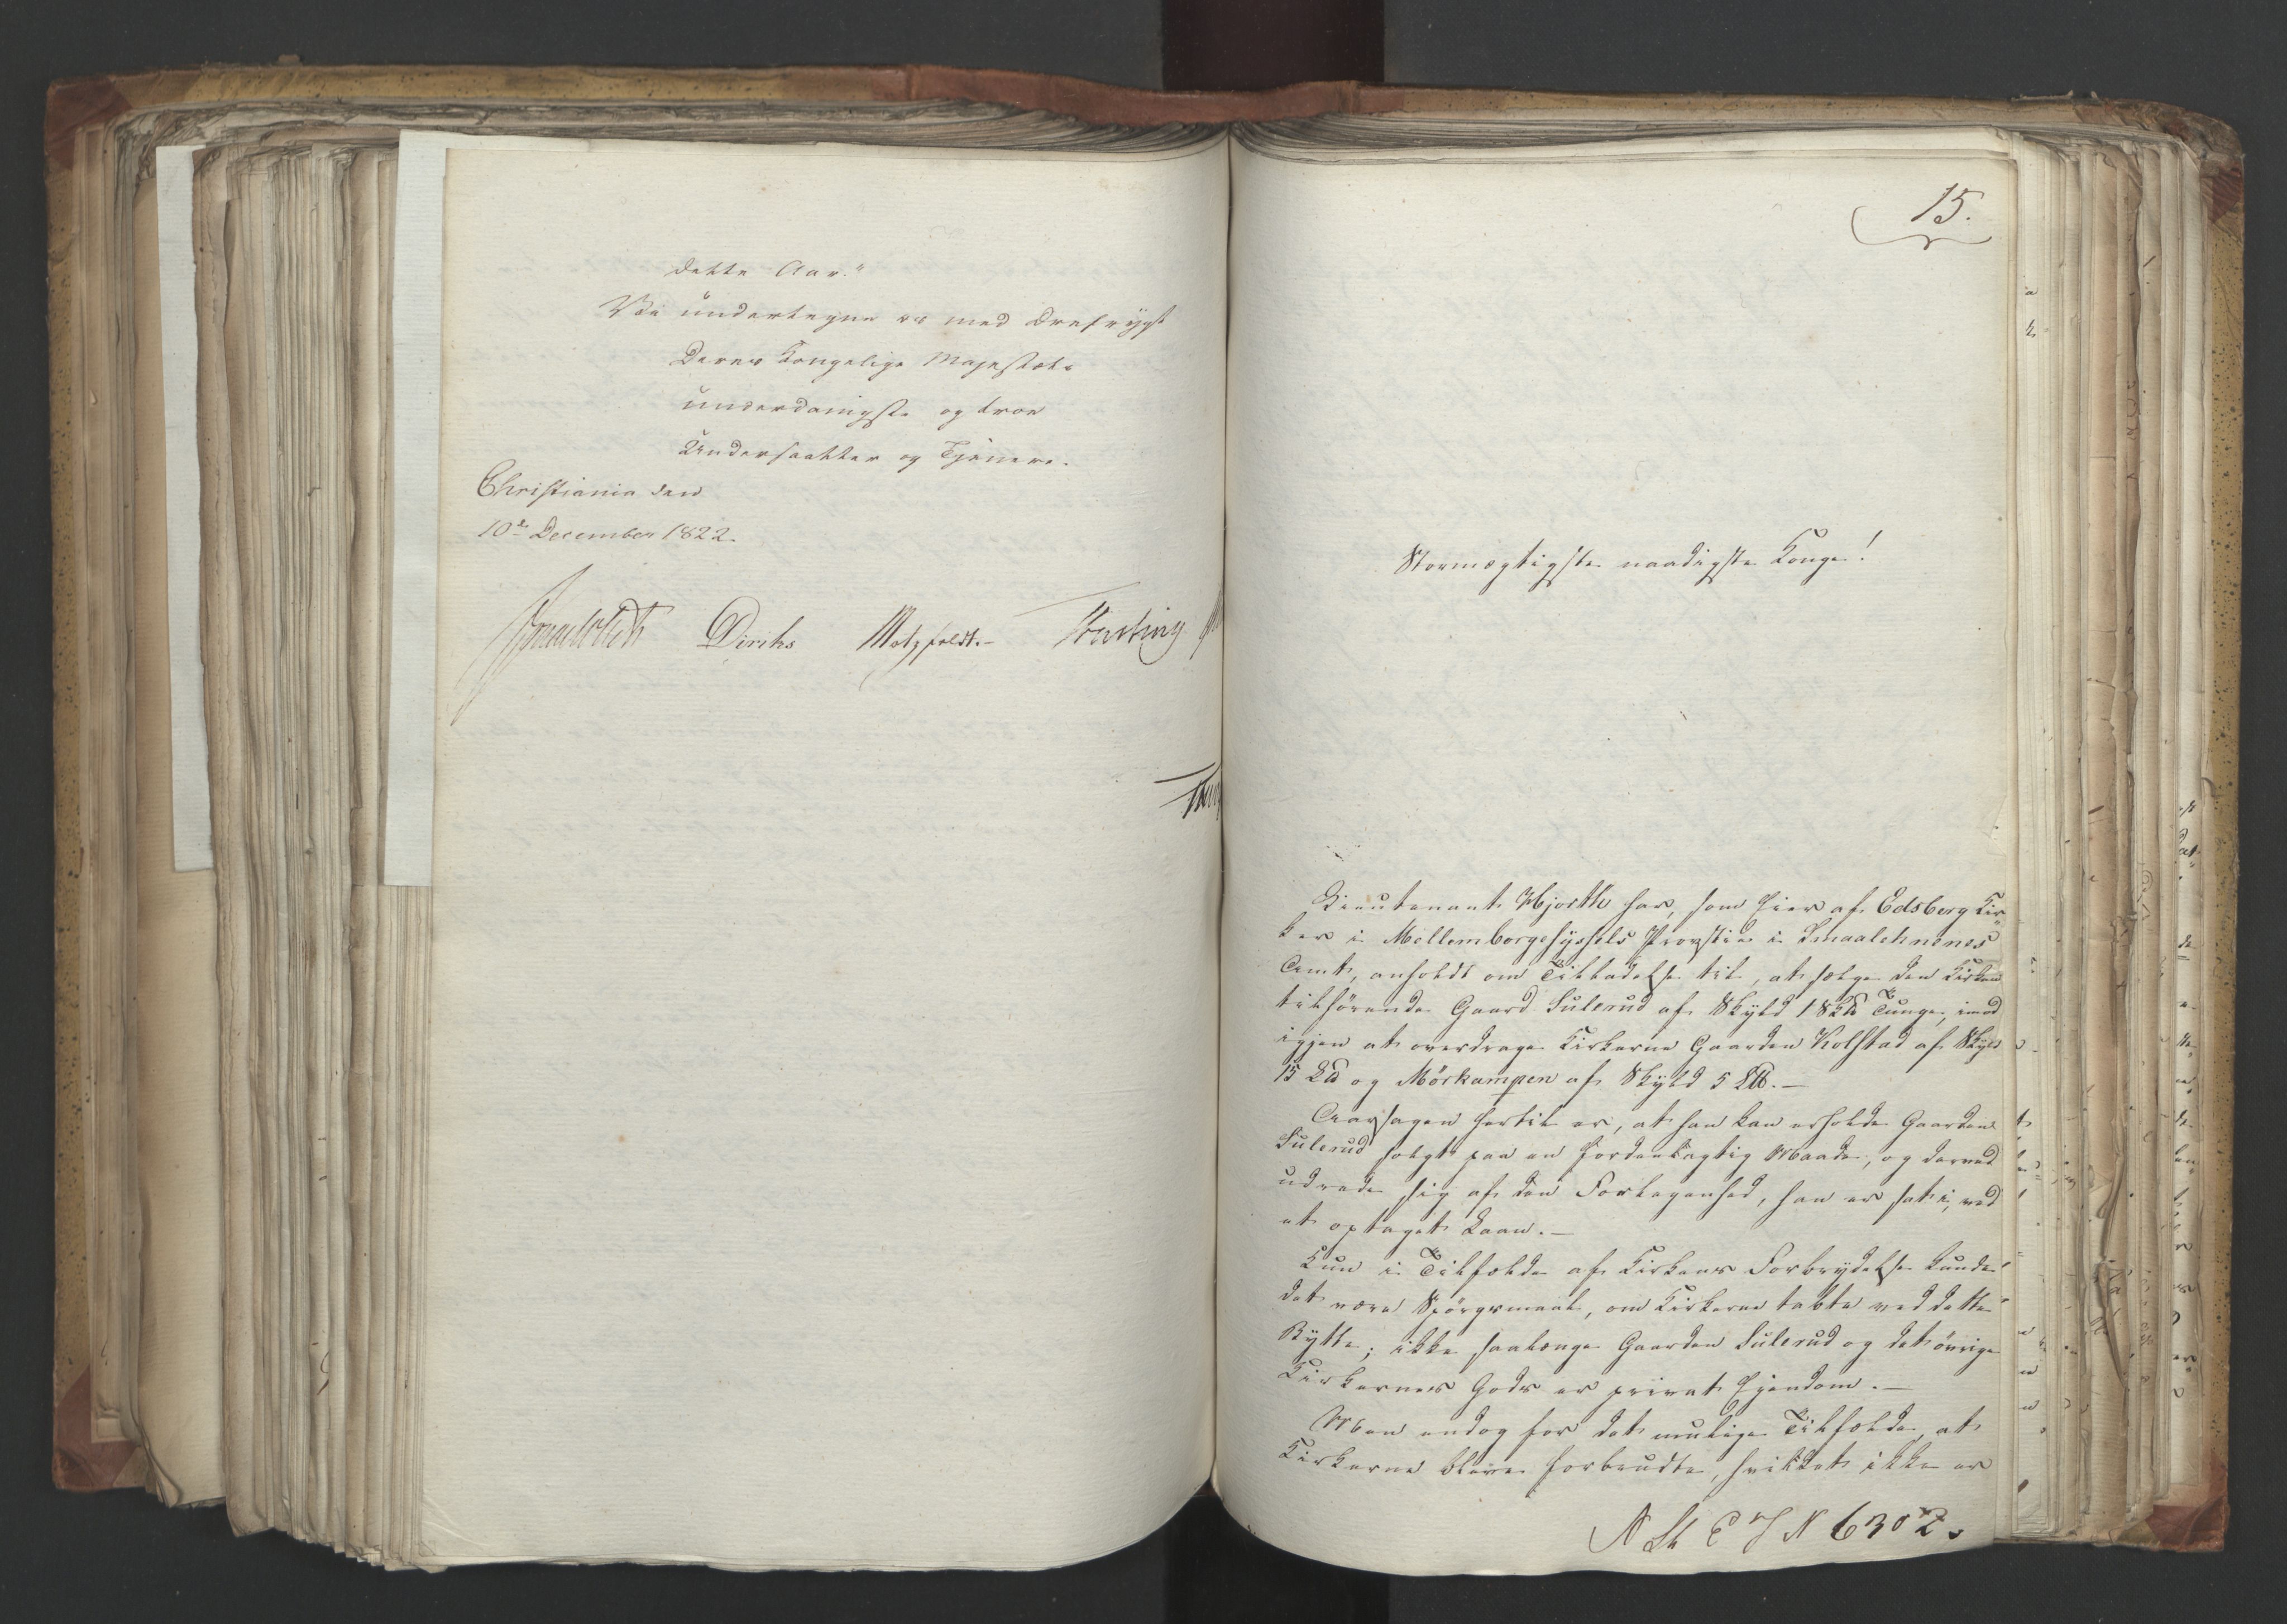 dette Aar."
Vi undertegne os med Ærefrygt
Deres Kongelige Majestæts
underdanigste og troe
Undersaatter og Tjenere.
Christiania den
10de December 1822.
Diriks Motzfeldt.
15.
Stormægtigste naadigste Konge!
Lieutenant Hjorth har, som Eier af Edsberg Kir-
ker i Mellemborgesyssels Provstie i Smaalehnenes
Amt, anholdt om Tilladelse til, at sælge den Kirken
tilhørende Gaard Sulerud af Skyld 1 Sk℔ Tunge, imod
igjen at overdrage Kirkerne Gaarden Kolstad af Skyld
15 L℔ og Mörkampen af Skyld 5 L℔.—
Aarsagen hertil er, at han kan erholde Gaarden
Sulerud solgt paa en fordeelagtig Maade, og derved
udrede sig af den Forlegenhed, han er sat i, ved
et optaget Laan.—
Kun i Tilfælde af Kirkens Forbrydelse kunde
det være Spörgsmaal, om Kirkerne tabte ved dette
Bytte; ikke saalænge Gaarden Sulerud og det övrige
Kirkernes Gods er privat Ejendom.—
Men endog for det mulige Tilfælde, at
Kirkerne bleve forbrudte, hvilket ikke er
6302.